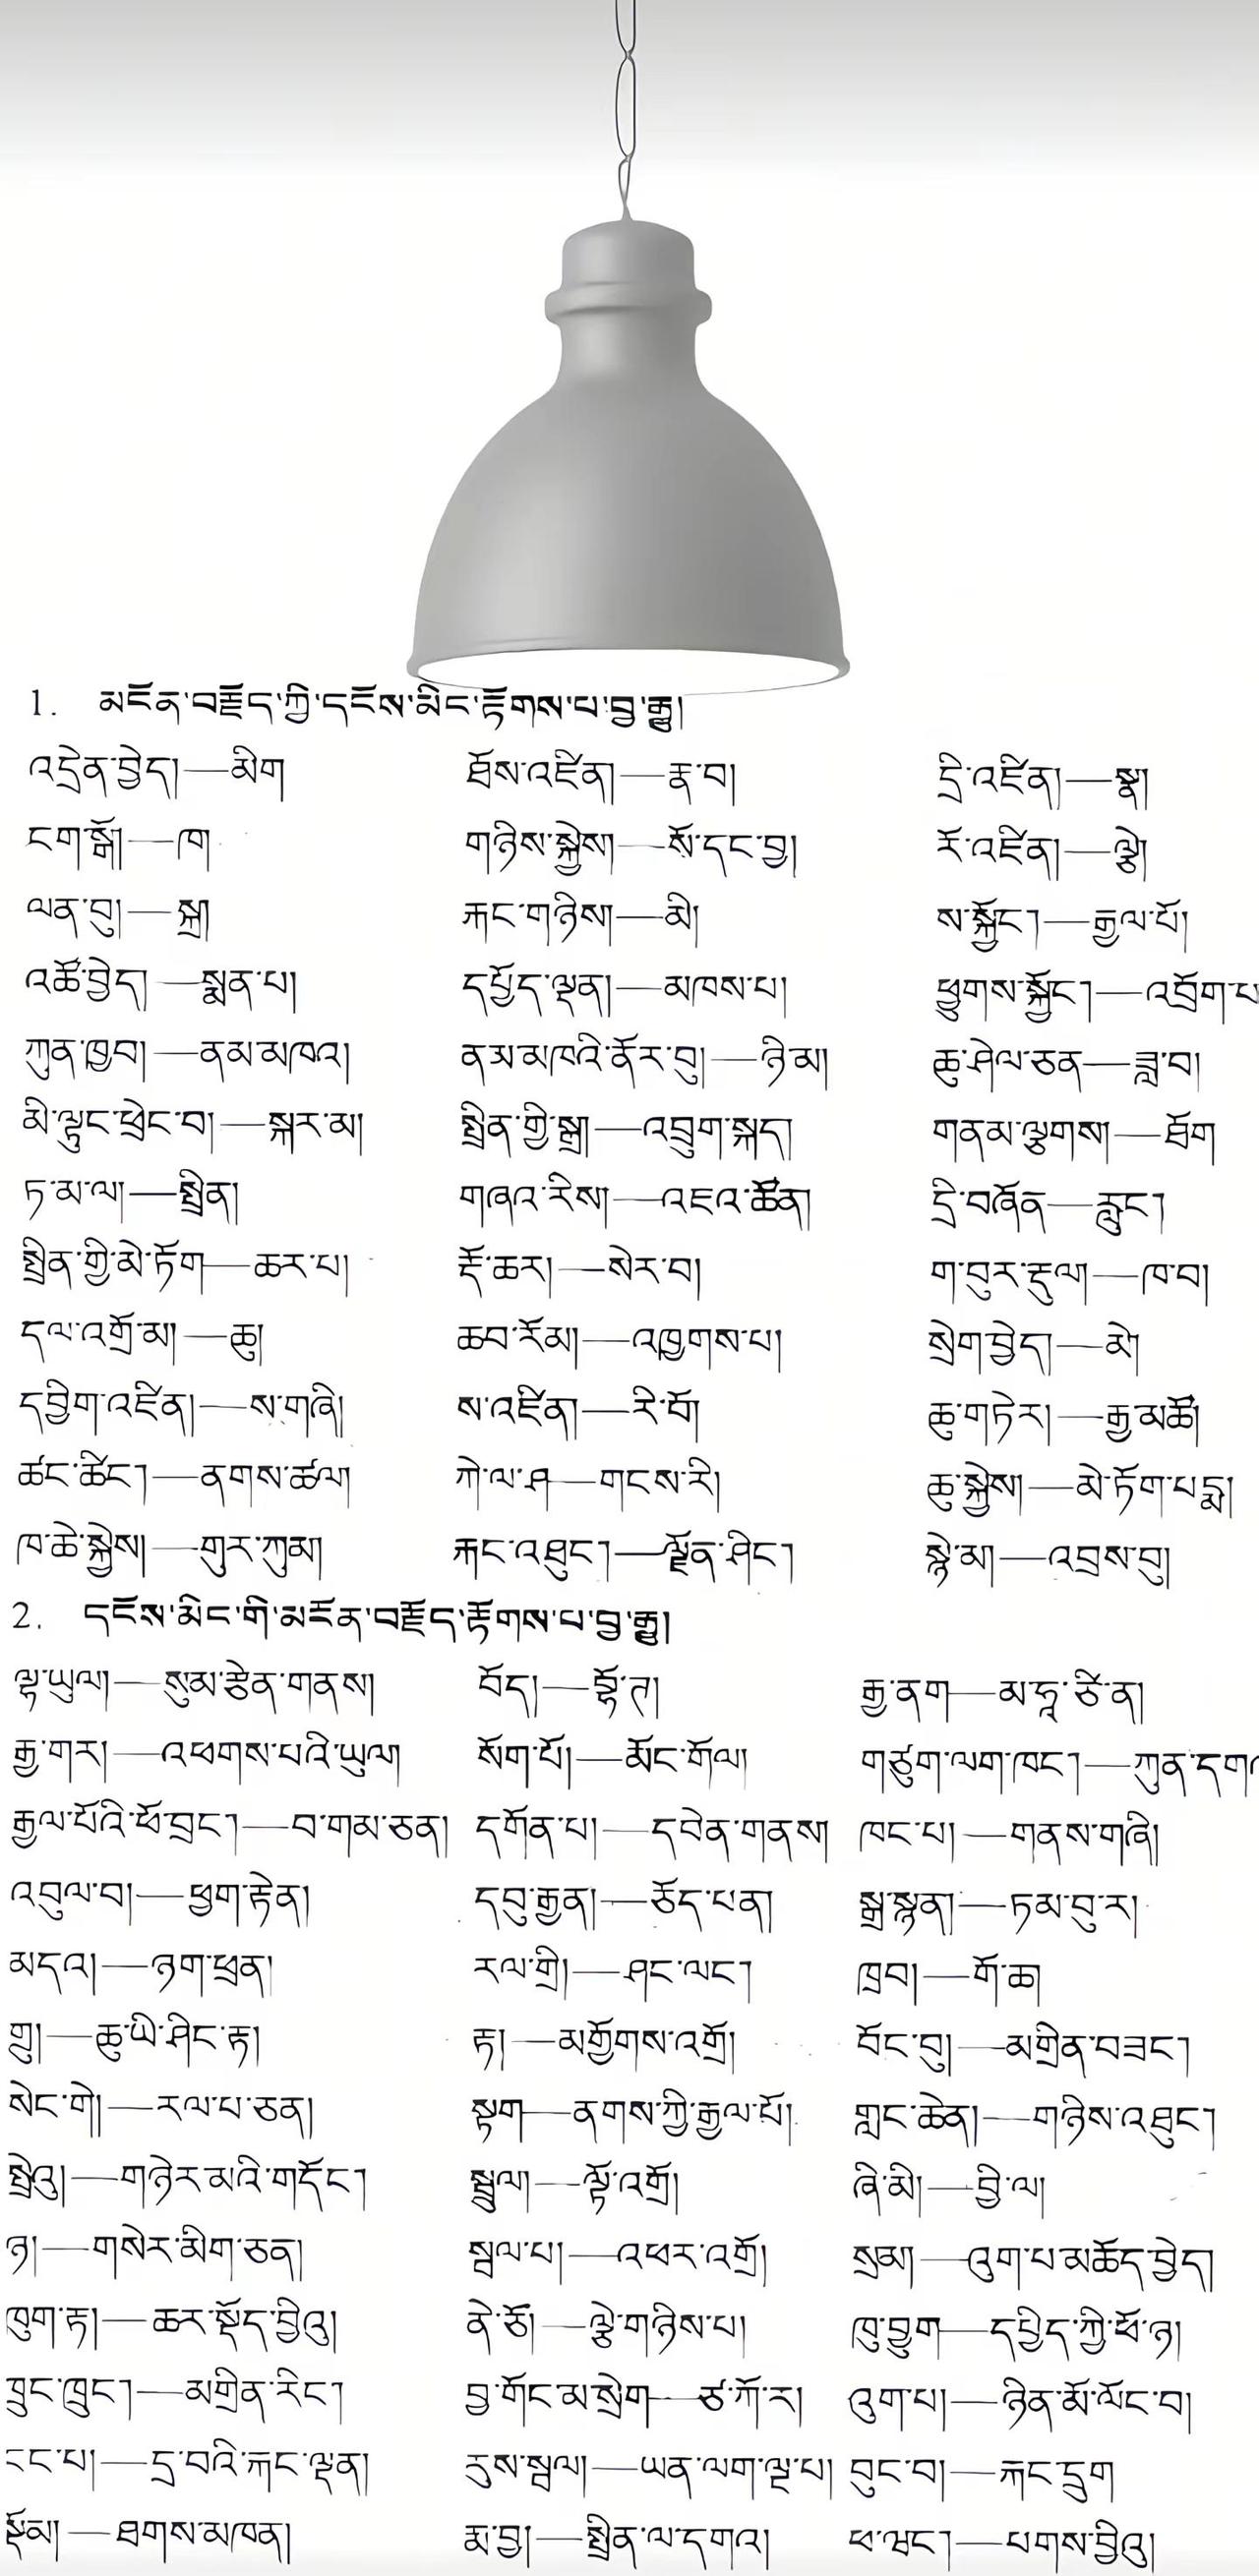 1. མངོན་བརྗོད་ཀྱི་དངོས་མིང་རྟོགས་པ་བྱ་རྒྱུ།
འདྲེན་བྱེད། — མིག ཐོས་འཛིན། — རྣ་བ། དྲི་འཛིན། — སྣ།
ངག་སྒོ། — ཁ། གཉིས་སྐྱེས། — སོ་དང་བྱ། རོ་འཛིན། — ལྕེ།
ལན་བུ། — སྐྲ། རྐང་གཉིས། — མི། ས་སྐྱོང་། — རྒྱལ་པོ།
འཚོ་བྱེད། — སྨན་པ། དཔྱོད་ལྡན། — མཁས་པ། ཕྱུགས་སྐྱོང་། — འབྲོག་པ
ཀུན་ཁྱབ། — ནམ་མཁའ། ནམ་མཁའི་ནོར་བུ། — ཉི་མ། ཆུ་ཤེལ་ཅན — ཟླ་བ།
མི་ལྟུང་ཕྲེང་བ། — སྐར་མ། སྤྲིན་གྱི་སྒྲ། — འབྲུག་སྐད། གནམ་ལྕགས། — ཐོག
ཏ་མ་ལ། — སྤྲིན། གཞའ་རིས། — འཇའ་ཚོན། དྲི་བཞོན — རླུང་།
སྤྲིན་གྱི་མེ་ཏོག — ཆར་པ། རྡོ་ཆར། — སེར་བ། ག་བུར་རྡུལ། — ཁ་བ།
དལ་འགྲོ་མ། — ཆུ། ཆབ་རོམ། — འཁྱགས་པ། སྲེག་བྱེད། — མེ།
དབྱིག་འཛིན། — ས་གཞི། ས་འཛིན། — རི་བོ། ཆུ་གཏེར། — རྒྱ་མཚོ།
ཚང་ཚིང་། — ནགས་ཚལ། ཀེ་ལ་ཤ — གངས་རི། ཆུ་སྐྱེས། — མེ་ཏོག་པདྨ།
ཁ་ཆེ་སྐྱེས། — གུར་ཀུམ། རྐང་འཐུང་། — ལྗོན་ཤིང་། སྙེ་མ། — འབྲས་བུ།
2. དངོས་མིང་གི་མངོན་བརྗོད་རྟོགས་པ་བྱ་རྒྱུ།
ལྷ་ཡུལ། — སུམ་རྩེན་གནས། བོད། — བྷོ་ཊ། རྒྱ་ནག — མ་ཧཱ་ཙི་ན།
རྒྱ་གར། — འཕགས་པའི་ཡུལ། སོག་པོ། — མོང་གོལ། གཙུག་ལག་ཁང་། — ཀུན་དགའ
རྒྱལ་པོའི་ཕོ་བྲང་། — བ་གམ་ཅན། དགོན་པ། — དབེན་གནས། ཁང་པ། — གནས་གཞི།
འབུལ་བ། — ཕྱག་རྟེན། དབུ་རྒྱན། — ཅོད་པན། སྒྲ་སྙན། — ཏམ་བུ་ར།
མདའ། — ཉག་ཕྲན། རལ་གྲི། — ཤང་ལང་། ཁྲབ། — གོ་ཆ།
གྲུ། — ཆུ་ཡི་ཤིང་རྟ། རྟ། — མགྱོགས་འགྲོ། བོང་བུ། — མགྲིན་བཟང་།
སེང་གེ། — རལ་པ་ཅན། སྟག — ནགས་ཀྱི་རྒྱལ་པོ། གླང་ཆེན། — གཉིས་འཐུང་།
སྤྲེའུ། — གཉེར་མའི་གདོང་། སྦྲུལ། — ལྟོ་འགྲོ། ཞི་མི། — བྱི་ལ།
ཉ། — གསེར་མིག་ཅན། སྦལ་པ། — འཕར་འགྲོ། སྲམ། — འུག་པ་མཆོད་བྱེད།
ཁུག་རྟ། — ཆར་སྡོད་བྱིའུ། ནེ་ཙོ། — ལྕེ་གཉིས་པ། ཁུ་བྱུག — དཔྱིད་ཀྱི་ཕོ་ཉ།
ཁྲུང་ཁྲུང་། — མགྲིན་རིང་། བྱ་གོང་མ་སྲེག — ཙ་ཀོ་ར། འུག་པ། — ཉིན་མོ་ལོང་བ།
ངང་པ། — དྲ་བའི་རྐང་ལྡན། རུས་སྦལ། — ཡན་ལག་ལྔ་པ། བུང་བ། — རྐང་དྲུག
སྡོམ། — ཐགས་མཁན། རྨ་བྱ། — སྤྲིན་ལ་དགའ། ཕ་ཝང་། — པགས་བྱིའུ།